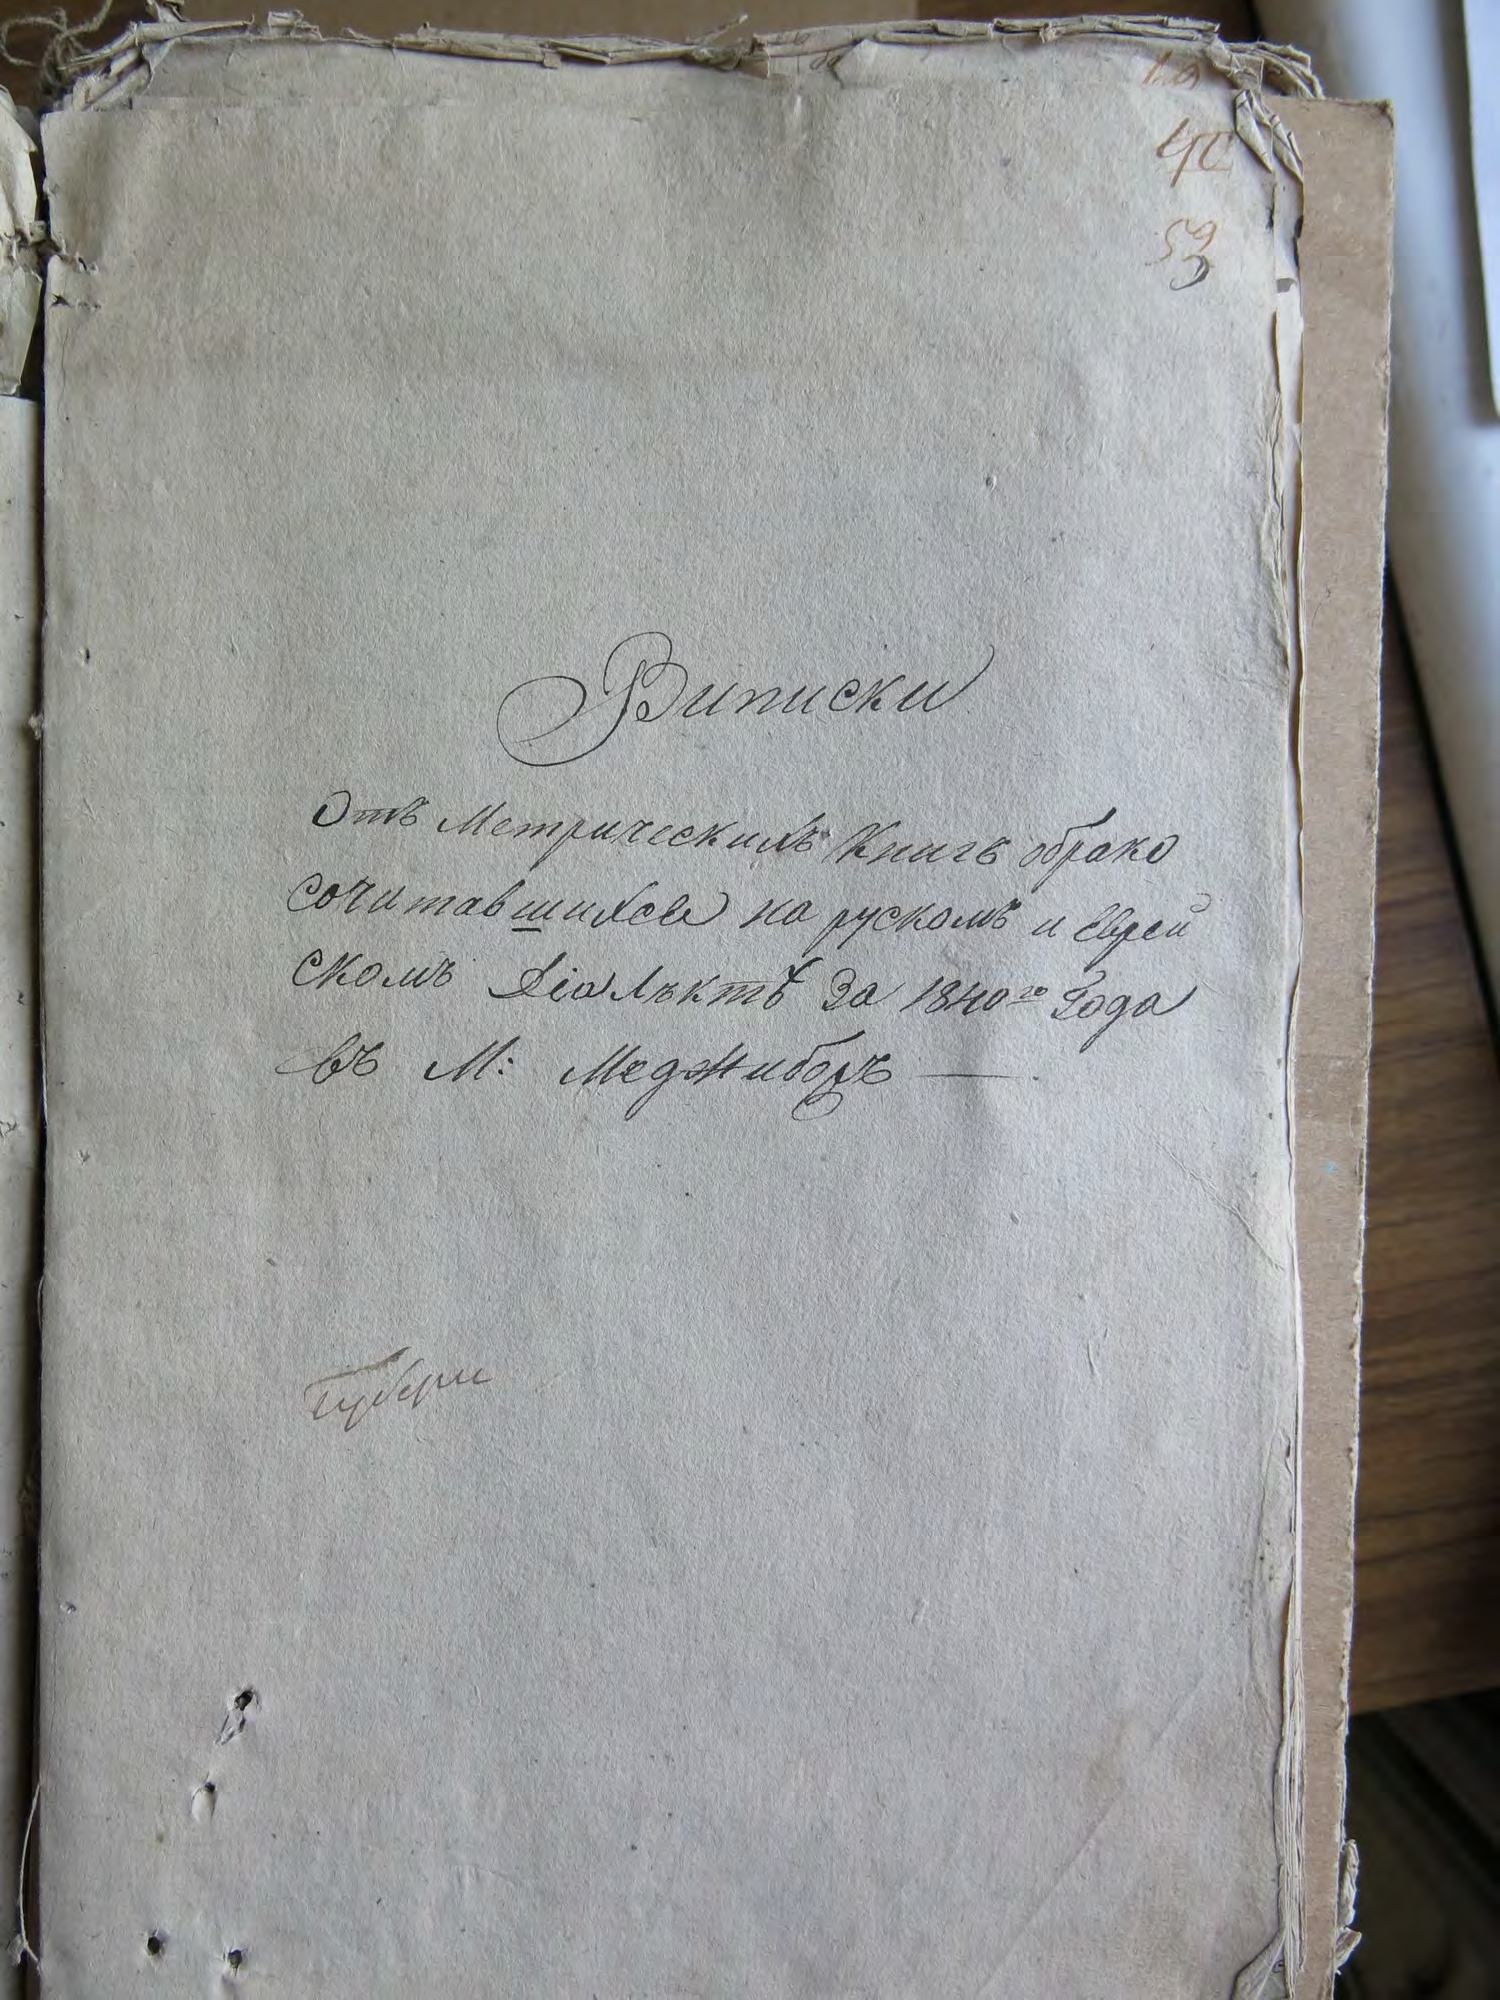 59
Виписки
Отъ Метрическихъ Книгъ обрако
сочитавшихся на рускомъ и Еврей
скомъ Діалъктѣ За 1840го Года
въ М: Меджибожъ